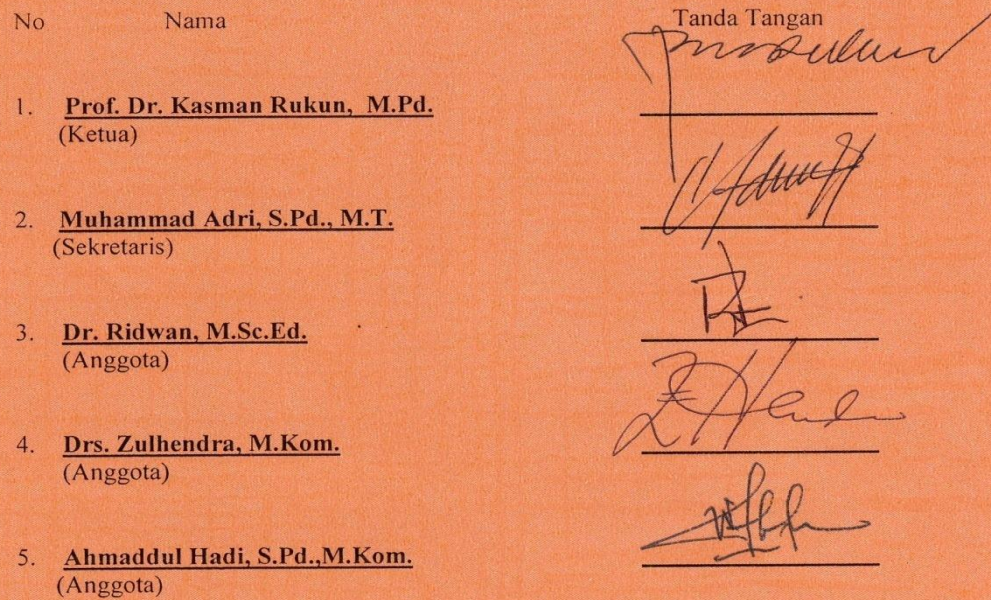 No Nama Tanda Tangan
1. Prof. Dr. Kasman Rukun, M.Pd.
(Ketua)
2. Muhammad Adri, S.Pd., M.T.
(Sekretaris)
3. Dr. Ridwan, M.Sc.Ed.
(Anggota)
4. Drs. Zulhendra, M.Kom.
(Anggota)
5. Ahmaddul Hadi, S.Pd.,M.Kom.
(Anggota)